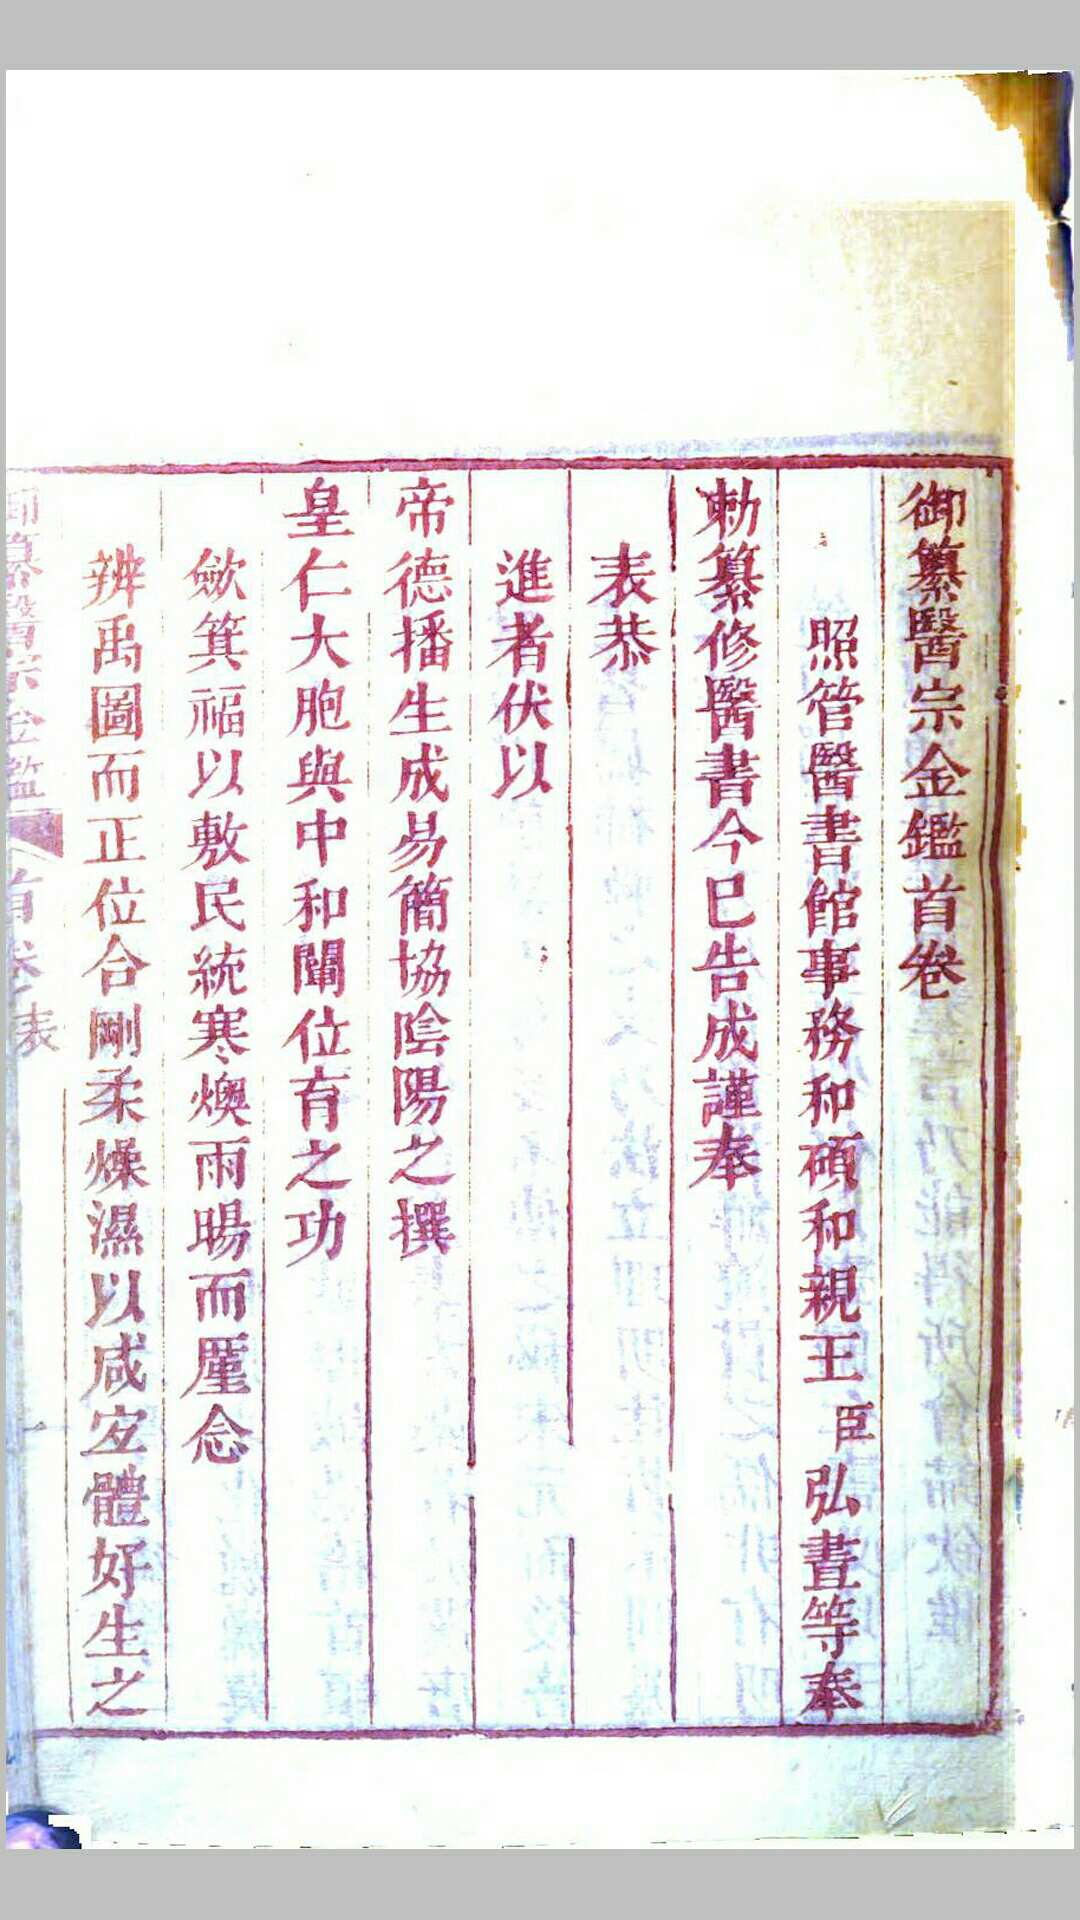 御纂醫宗金鑑首卷
照管醫書館事務和碩和親王臣弘晝等奉
勅纂修醫書今已告成謹奉
表恭
進者伏以
帝德播生成易簡協陰陽之撰
皇仁大胞與中和闡位育之功
斂箕福以敷民統寒燠雨暘而厪念
辨禹圖而正位合剛柔燥濕以咸宜體好生之
御纂醫宗金鑑 首卷 表 一